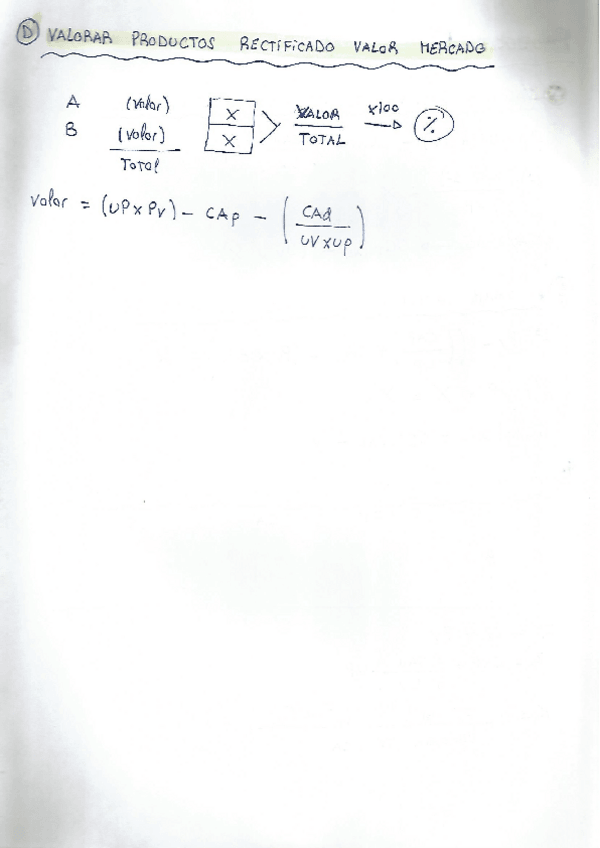 D VALORAR PRODUCTOS RECTIFICADO VALOR MERCADO
A (valor) X VALOR x100 %
B (valor) X TOTAL
Total
Valor = (UP x PV) - CAp - (CAd / UV x UP)